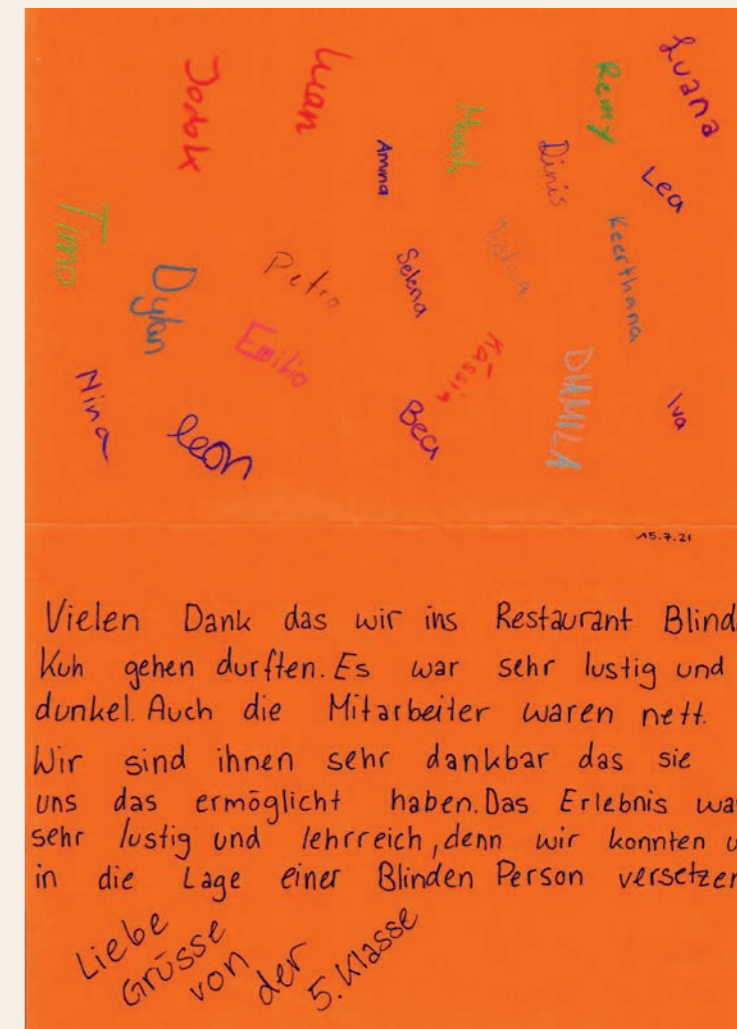 Luana
Remy
Luan
Lea
Dinis
Amina
Keerthana
Timo
Dylan
Petro
Selena
Emilio
Kássia
DHMILA
Iva
Nina
Leon
Bea
15.7.21
Vielen Dank das wir ins Restaurant Blind
Kuh gehen durften. Es war sehr lustig und
dunkel. Auch die Mitarbeiter waren nett.
Wir sind ihnen sehr dankbar das sie
uns das ermöglicht haben. Das Erlebnis wa
sehr lustig und lehrreich, denn wir konnten u
in die Lage einer Blinden Person versetzen
Liebe
Grüsse
von
der
5. Klasse